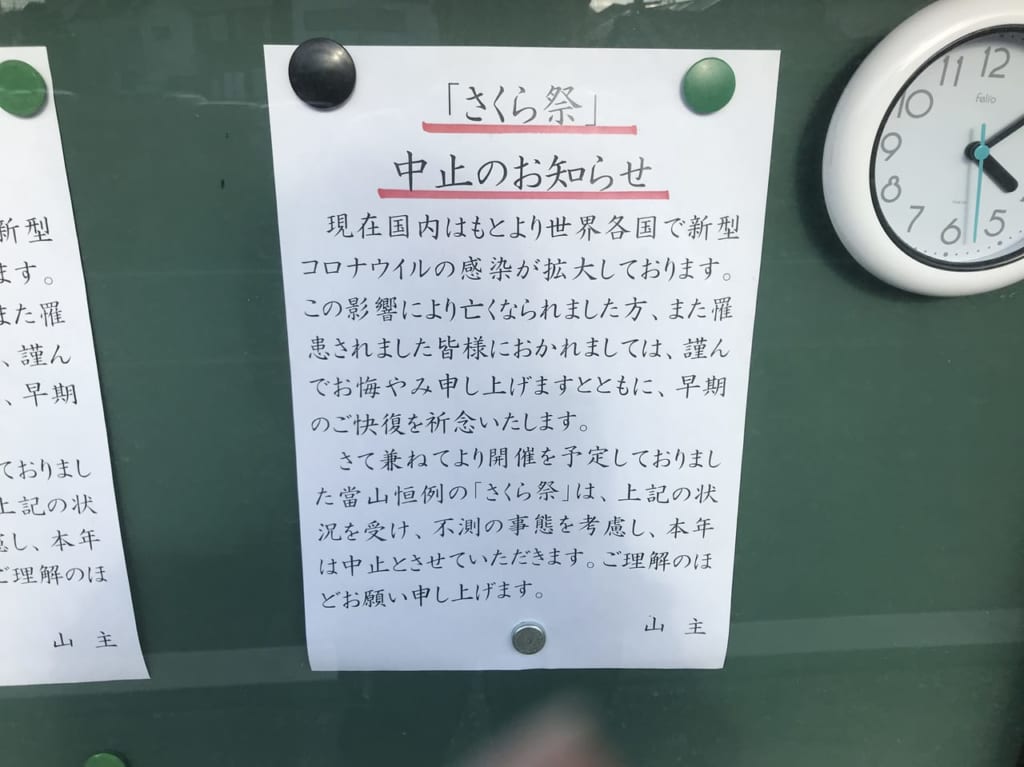 「さくら祭」
中止のお知らせ
現在国内はもとより世界各国で新型
コロナウイルの感染が拡大しております。
この影響により亡くなられました方、また罹
患されました皆様におかれましては、謹ん
でお悔やみ申し上げますとともに、早期
のご快復を祈念いたします。
さて兼ねてより開催を予定しておりまし
た當山恒例の「さくら祭」は、上記の状
況を受け、不測の事態を考慮し、本年
は中止とさせていただきます。ご理解のほ
どお願い申し上げます。
山 主
新型
ます。
また罹
、謹ん
、早期
ておりまし
上記の状
慮し、本年
ご理解のほ
山 主
11 12
10
9
8
7 6 5
Felio